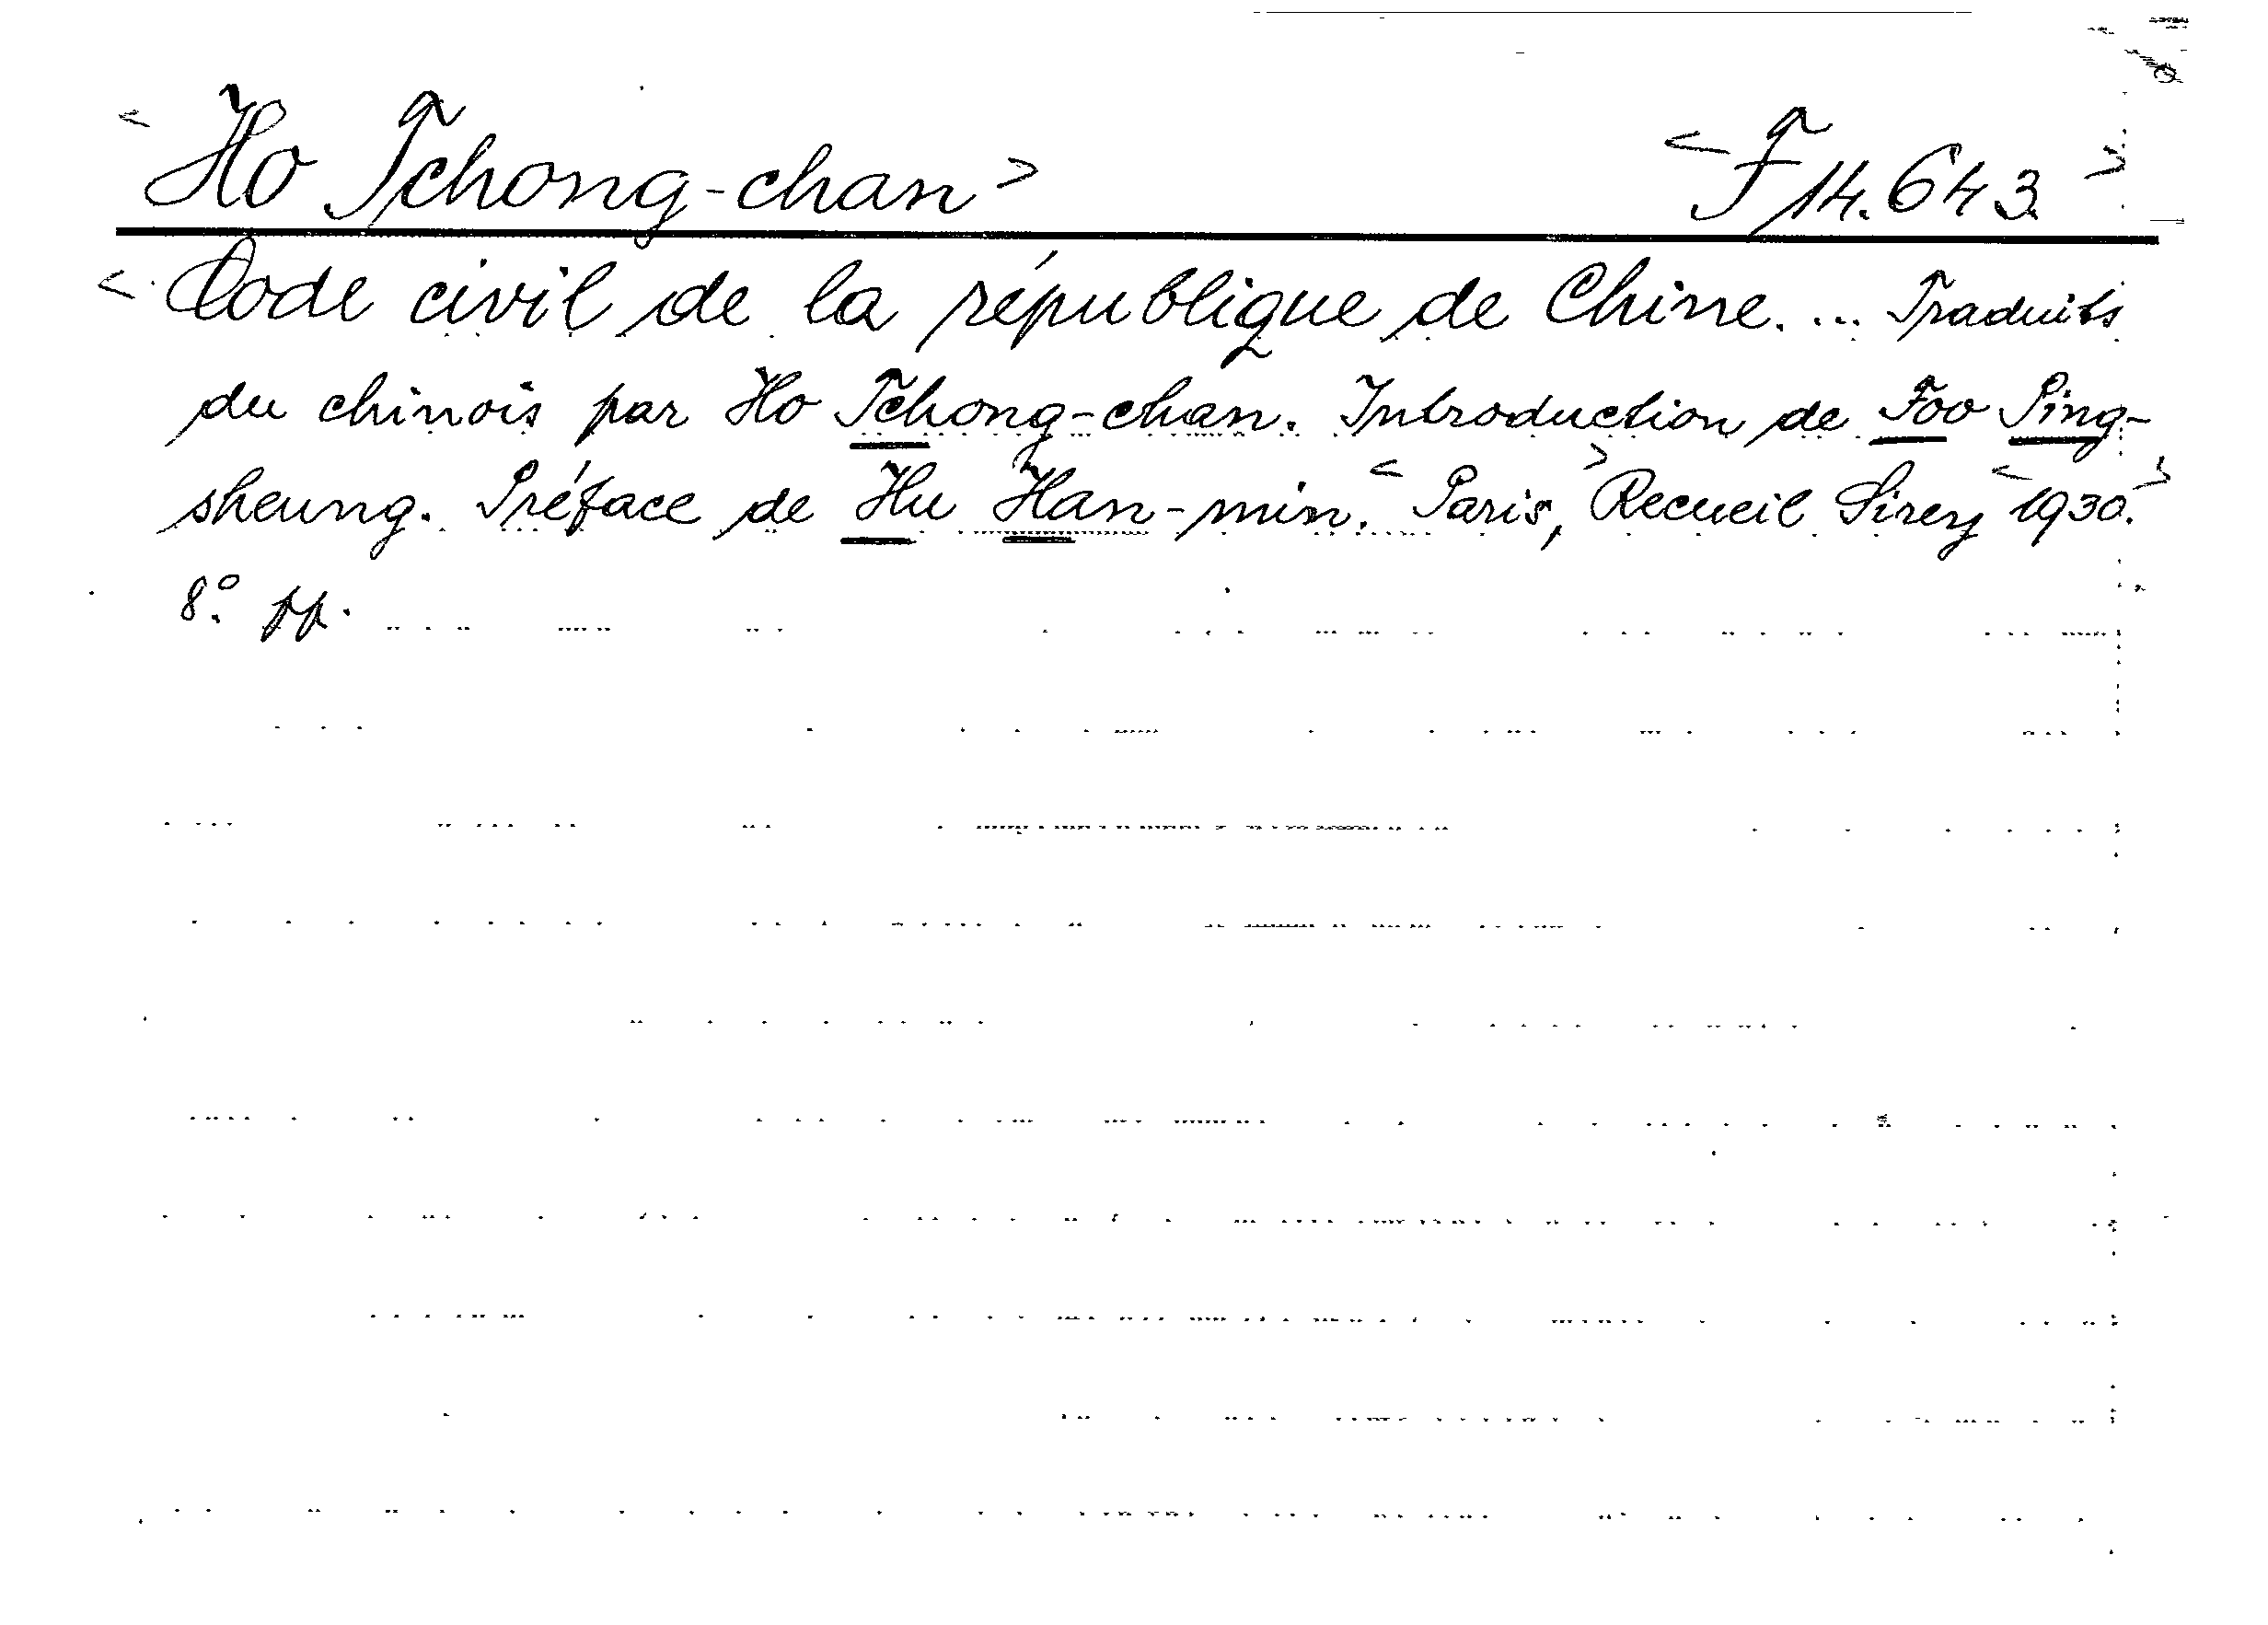 <Ho Tchong-chan> <F 14.643.>
<Code civil de la république de Chine. ... Traduits
du chinois par Ho Tchong-chan. Introduction de Foo Ping-
sheung. Préface de Hu Han-min. <Paris,> Recueil Sirey <1930.>
8°. pp.